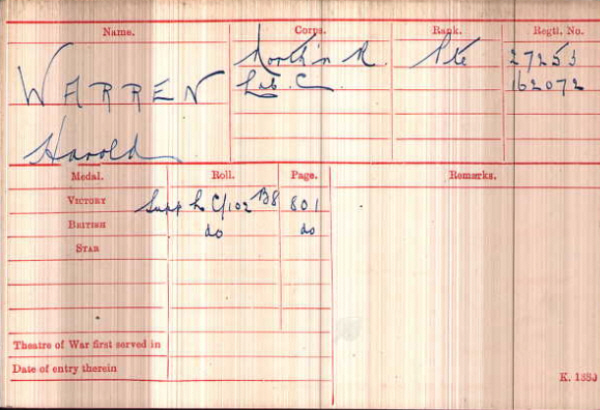 Name. Corps. Rank. Regtl. No.
WARREN North'n R. Pte 27253
Lab. C. 162072
Harold
Medal. Roll. Page. Remarks.
VICTORY C/102 B8 801
BRITISH do do
STAR
Theatre of War first served in
Date of entry therein
K. 1380